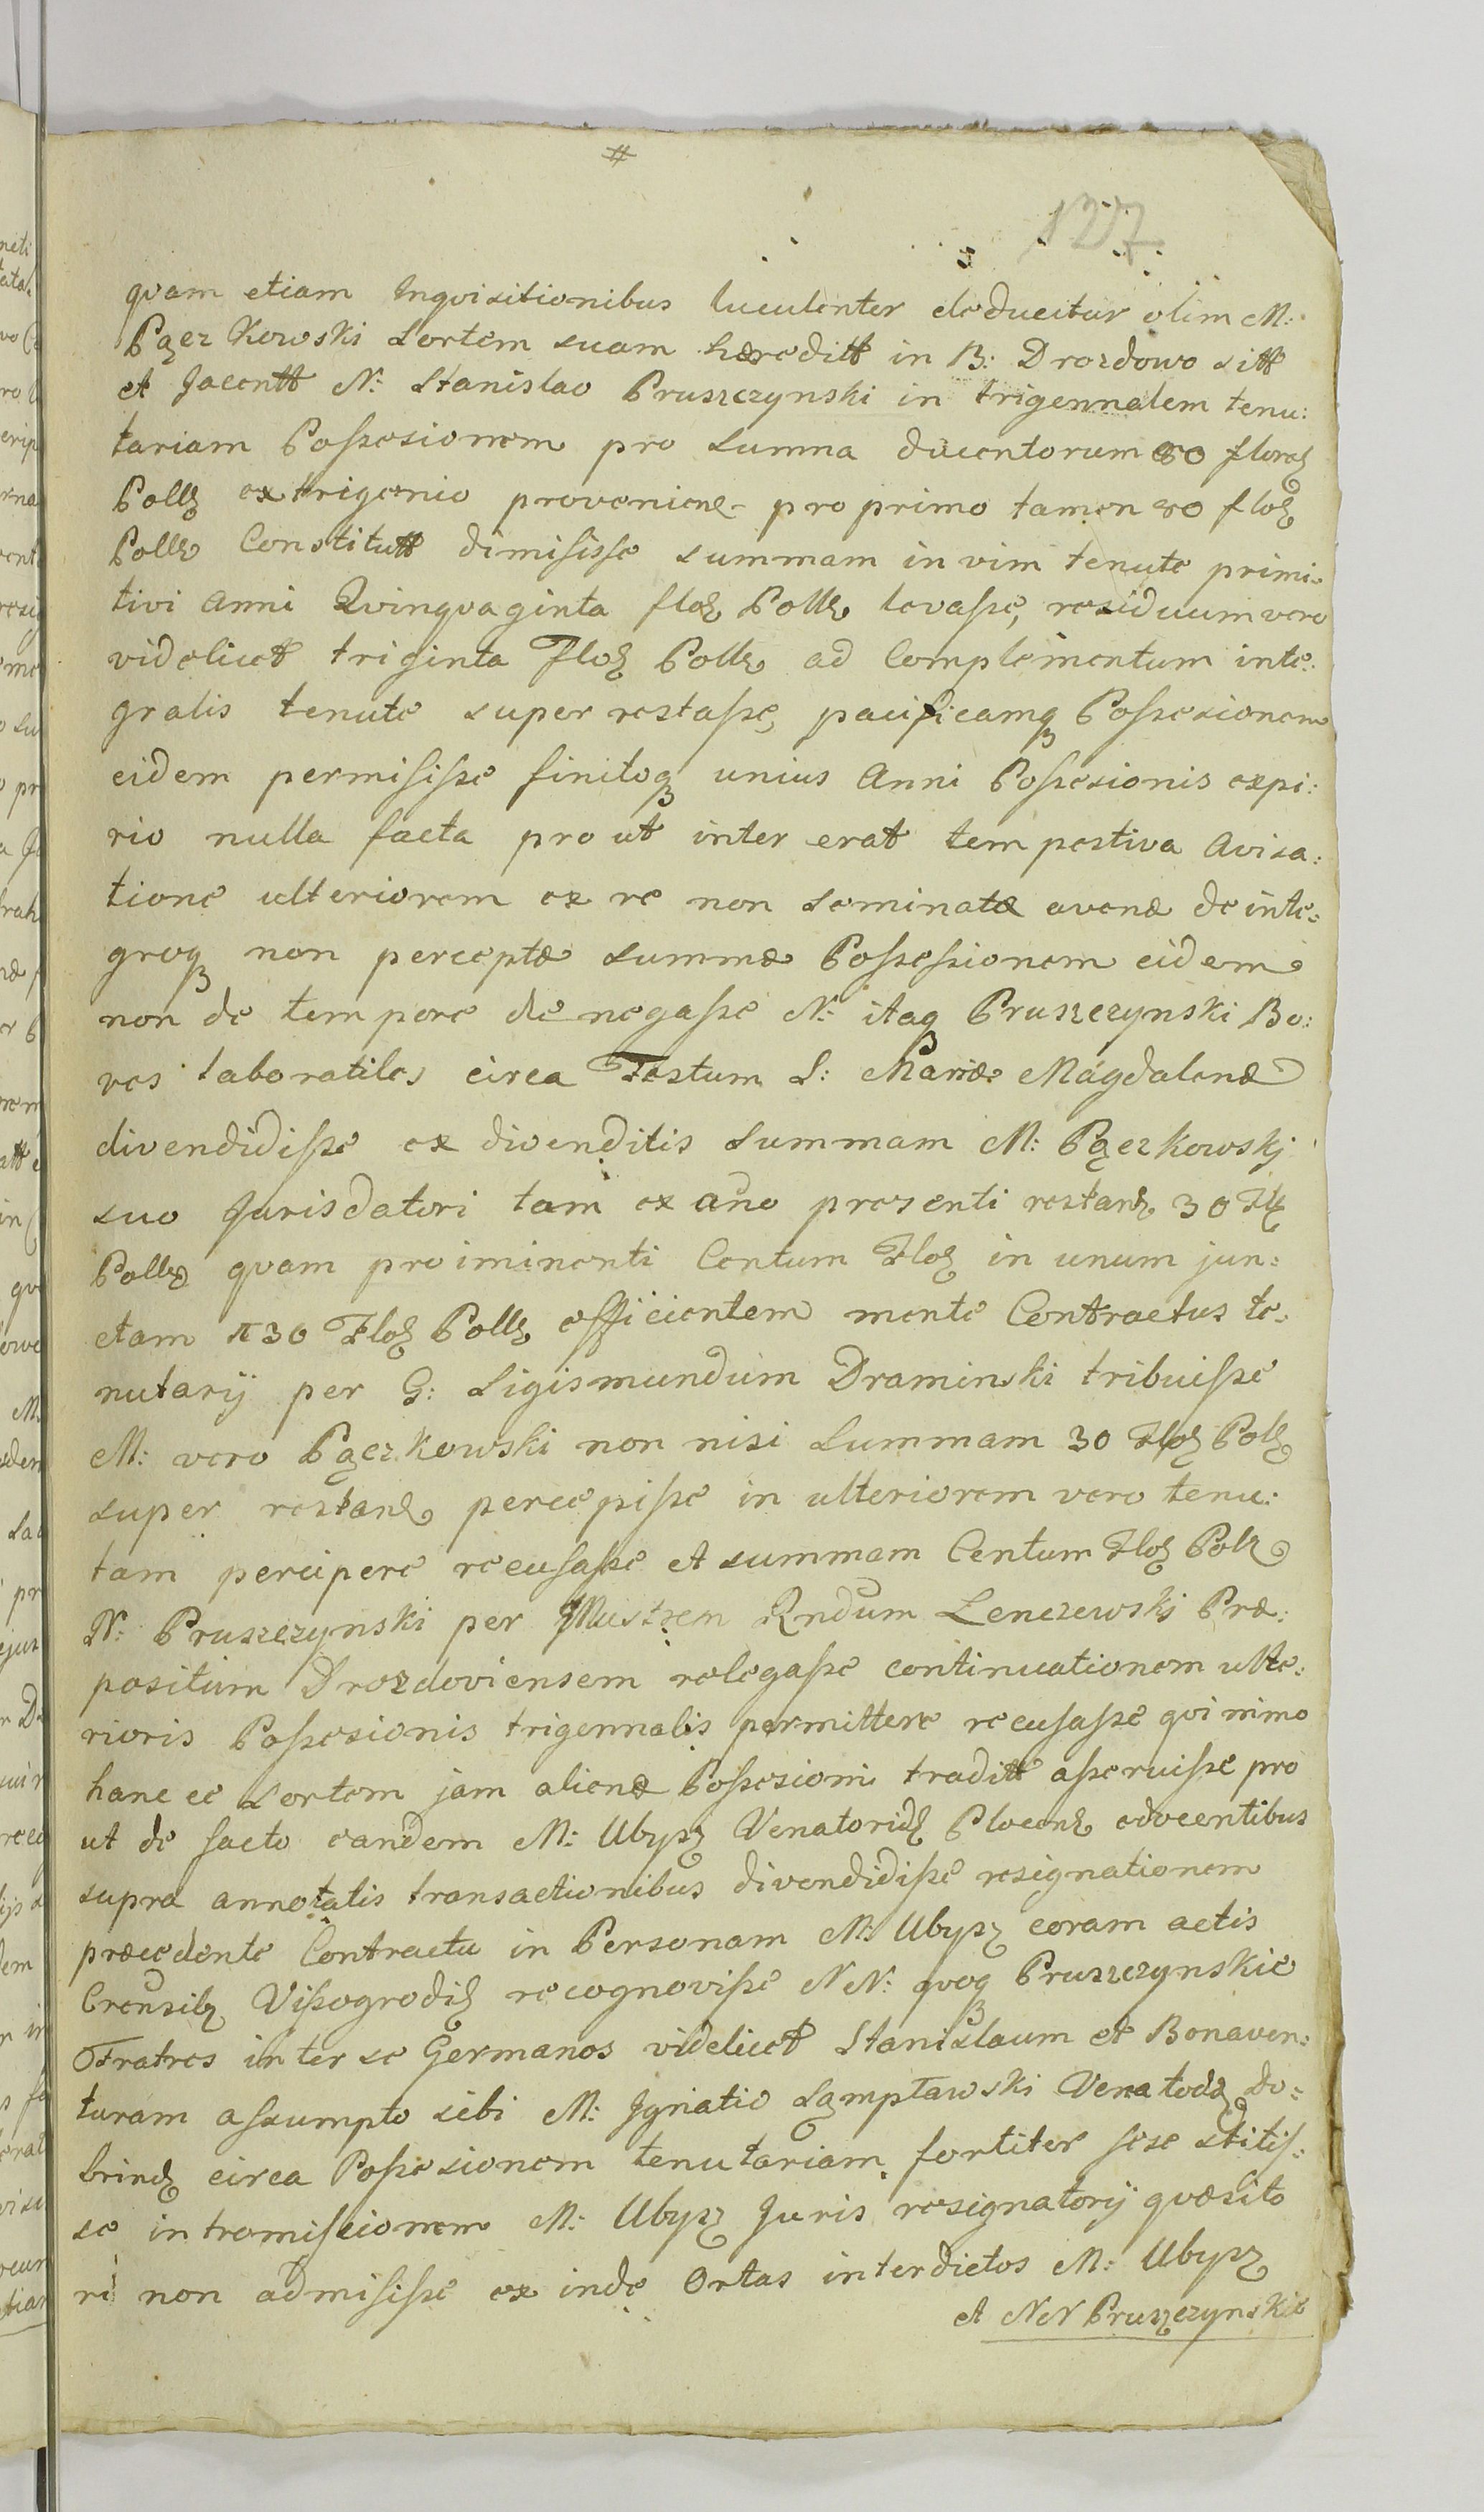 #
127
quam etiam Inquisitionibus luculenter deducitur olim M:
Pączkowski Sortem suam hæreditt in B: Drozdowo sitt
et Jacentt N: Stanislao Pruszczynski in trigennalem tenu:
tariam Possesionem pro Summa ducentorum 80 floroꝝ
Pollꝝ ex trigenio provenienꝭ pro primo tamen 80 floꝝ
Pollꝝ Constitutt dimisisse summam in vim tenute primi:
tivi Anni Qvinqvaginta floꝝ Pollꝝ levasse, residuum vero
videlicet triginta Floꝝ Pollꝝ ad Complementum inte:
gralis tenute super restasse, pacificamqꝫ Possesionem
eidem permisisse finitoqꝫ unius Anni Possesionis expi:
rio nulla facta pro ut inter erat tempestiva Avisa:
tione ulteriorem ex re non Seminatæ avenæ de inte:
groqꝫ non perceptæ Summæ Possessionem eidem
non de tempore denegasse N: itaqꝫ Pruszczynski Bo:
ves laboratiles circa Festum S: Mariæ Magdalenæ
divendidisse ex divenditis Summam M: Pączkowskj
suo Jurisdatori tam ex año presenti restanꝭ 30 Flꝝ
Pollꝝ quam pro iminenti Centum Floꝝ in unum jun:
ctam 130 Floꝝ Pollꝝ efficientem mente Contractus te:
nutarij per G: Sigismundum Draminski tribuisse
M: vero Pączkowski non nisi Summam 30 Floꝝ Polꝝ
super restanꝭ percepisse in ulteriorem vero tenu:
tam percipere recusasse et summam Centum Floꝝ Polꝝ
N: Pruszczynski per Illustrem Rndum Lenczewskj Præ:
positum Drozdoviensem relegasse continuationem ulte:
rioris Possesionis trigennalis permittere recusasse qvinimo
hancce Sortem jam alienæ Possesioni traditt asseruisse pro
ut de facto eandem M: Ubysꝫ Venatoridꝭ Plocenꝭ edocentibus
supra annotatis transactionibus divendidisse resignationem
præcedente Contractu in Personam M: Ubysꝫ coram actis
Crensilꝫ Vissogrodiꝭ recognovisse NN: qvoqꝫ Pruszczynskie
Fratres inter se Germanos videlicet Stanislaum et Bonaven:
turam assumpto sibi M: Ignatio Sąmpławski Venatodꝫ Do:
brindꝭ circa Possesionem tenutariam fortiter sese stitis:
se intromissionem M: Ubysꝫ Juris resignatorij qvæsito
ri non admisisse ex inde Ortas interdictos M: Ubysꝫ
et NN Pruszczynskie